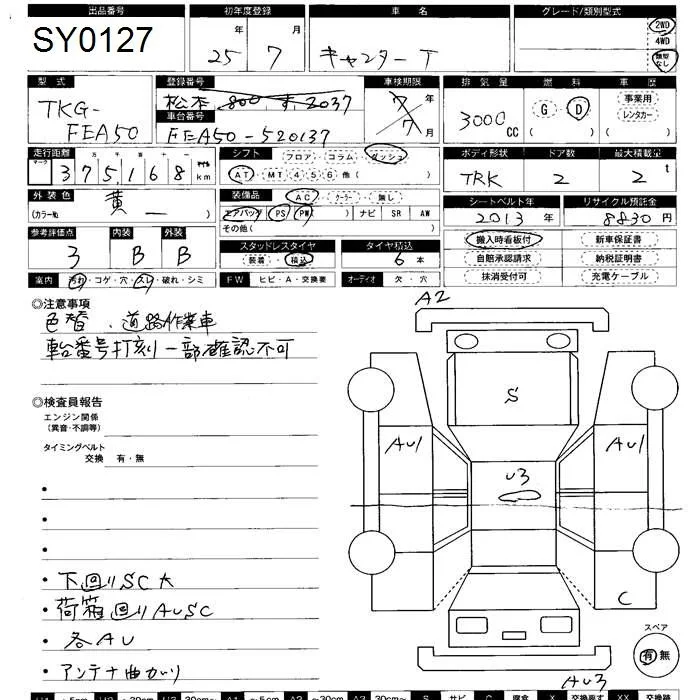 出品番号 初年度登録 車名 グレード/類別型式
SY0127 25年 7月 キャンターT 2WD 4WD 類型なし
型式 登録番号 車検期限 排気量 燃料 車歴
TKG-FEA50 松本 800 す 2037 7年 7月 3000CC G D ( ) 事業用 レンタカー ( )
車台番号
FEA50-520137
走行距離 シフト フロア・コラム・ダッシュ ボディ形状 ドア数 最大積載量
マーク 十万千百十 マイル
375,168km AT・MT 4 5 6 他( ) TRK 2 2t
外装色 装備品 AC・クーラー・無し シートベルト年 リサイクル預託金
(カラーNo 黄 ― ) エアバッグ PS PW( ) ナビ SR AW 2013年 8830円
その他( )
参考評価点 内装 外装 スタッドレスタイヤ タイヤ積込 搬入時看板付 新車保証書
3 B B 装着・積込 6本 自賠承認請求 納税証明書
室内 汚れ・コゲ・穴・スレ・破れ・シミ FW ヒビ・A・交換要 オーディオ 欠・穴 抹消受付可 充電ケーブル
◎注意事項
色替、道路作業車
車台番号打刻一部確認不可
◎検査員報告
エンジン関係
(異音・不調等)
タイミングベルト
交換 有・無
・
・
・
・下回りSC大
・荷箱回りAUSC
・各AU
・アンテナ曲がり
A2
S
AU1
U3
AU1
C
スペア
有 無
AU3